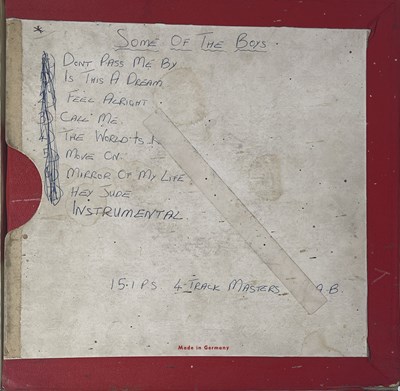 SOME OF THE BOYS.
DONT PASS ME BY
IS THIS A DREAM
FEEL ALRIGHT.
CALL ME.
THE WORLD IS
MOVE ON.
MIRROR OF MY LIFE.
HEY JUDE
INSTRUMENTAL.
15.I.P.S 4-TRACK MASTERS A.B.
Made in Germany